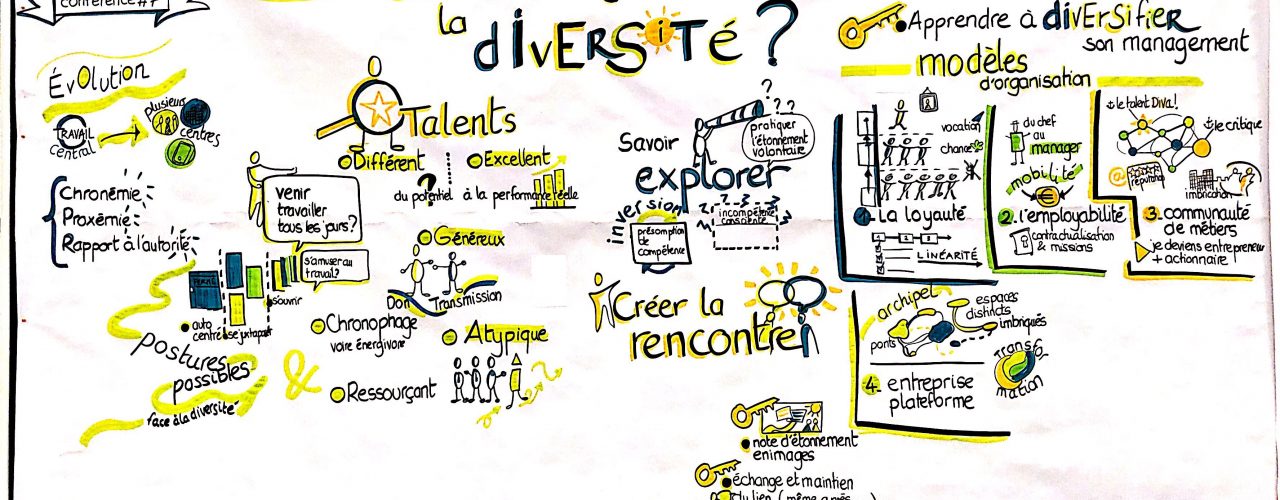 conférence #7
la
diVERSiTé ?
Évolution
TRAVAIL
central
plusieurs
centres
Chronémie
Proxémie
Rapport à l'autorité
venir
travailler
tous les jours ?
s'amuser au
travail ?
FERMÉ
s'ouvrir
auto
centré
se juxtaposer
postures
possibles
face à la diversité
&
Talents
Différent
Excellent
du potentiel
?
à la performance réelle
Généreux
Don
Transmission
Chronophage
voire énergivore
Ressourçant
Atypique
Savoir
explorer
? ? ?
pratiquer
l'étonnement
volontaire
inversion
présomption
de
compétence
incompétence
consciente
Créer la
rencontre
note d'étonnement
en images
échange et maintien
du lien (même après
Apprendre à diVErSiFiER
son management
modèles
d'organisation
vocation
chance
1. La loyauté
LINÉARITÉ
du chef
au
manager
mobilité
2. l'employabilité
contractualisation
& missions
le talent Diva !
le critique
@
réputation
imbrication
3. communauté
de métiers
je deviens entrepreneur
+ actionnaire
archipel
ponts
espaces
distincts
imbriqués
Transfor
mation
4. entreprise
plateforme